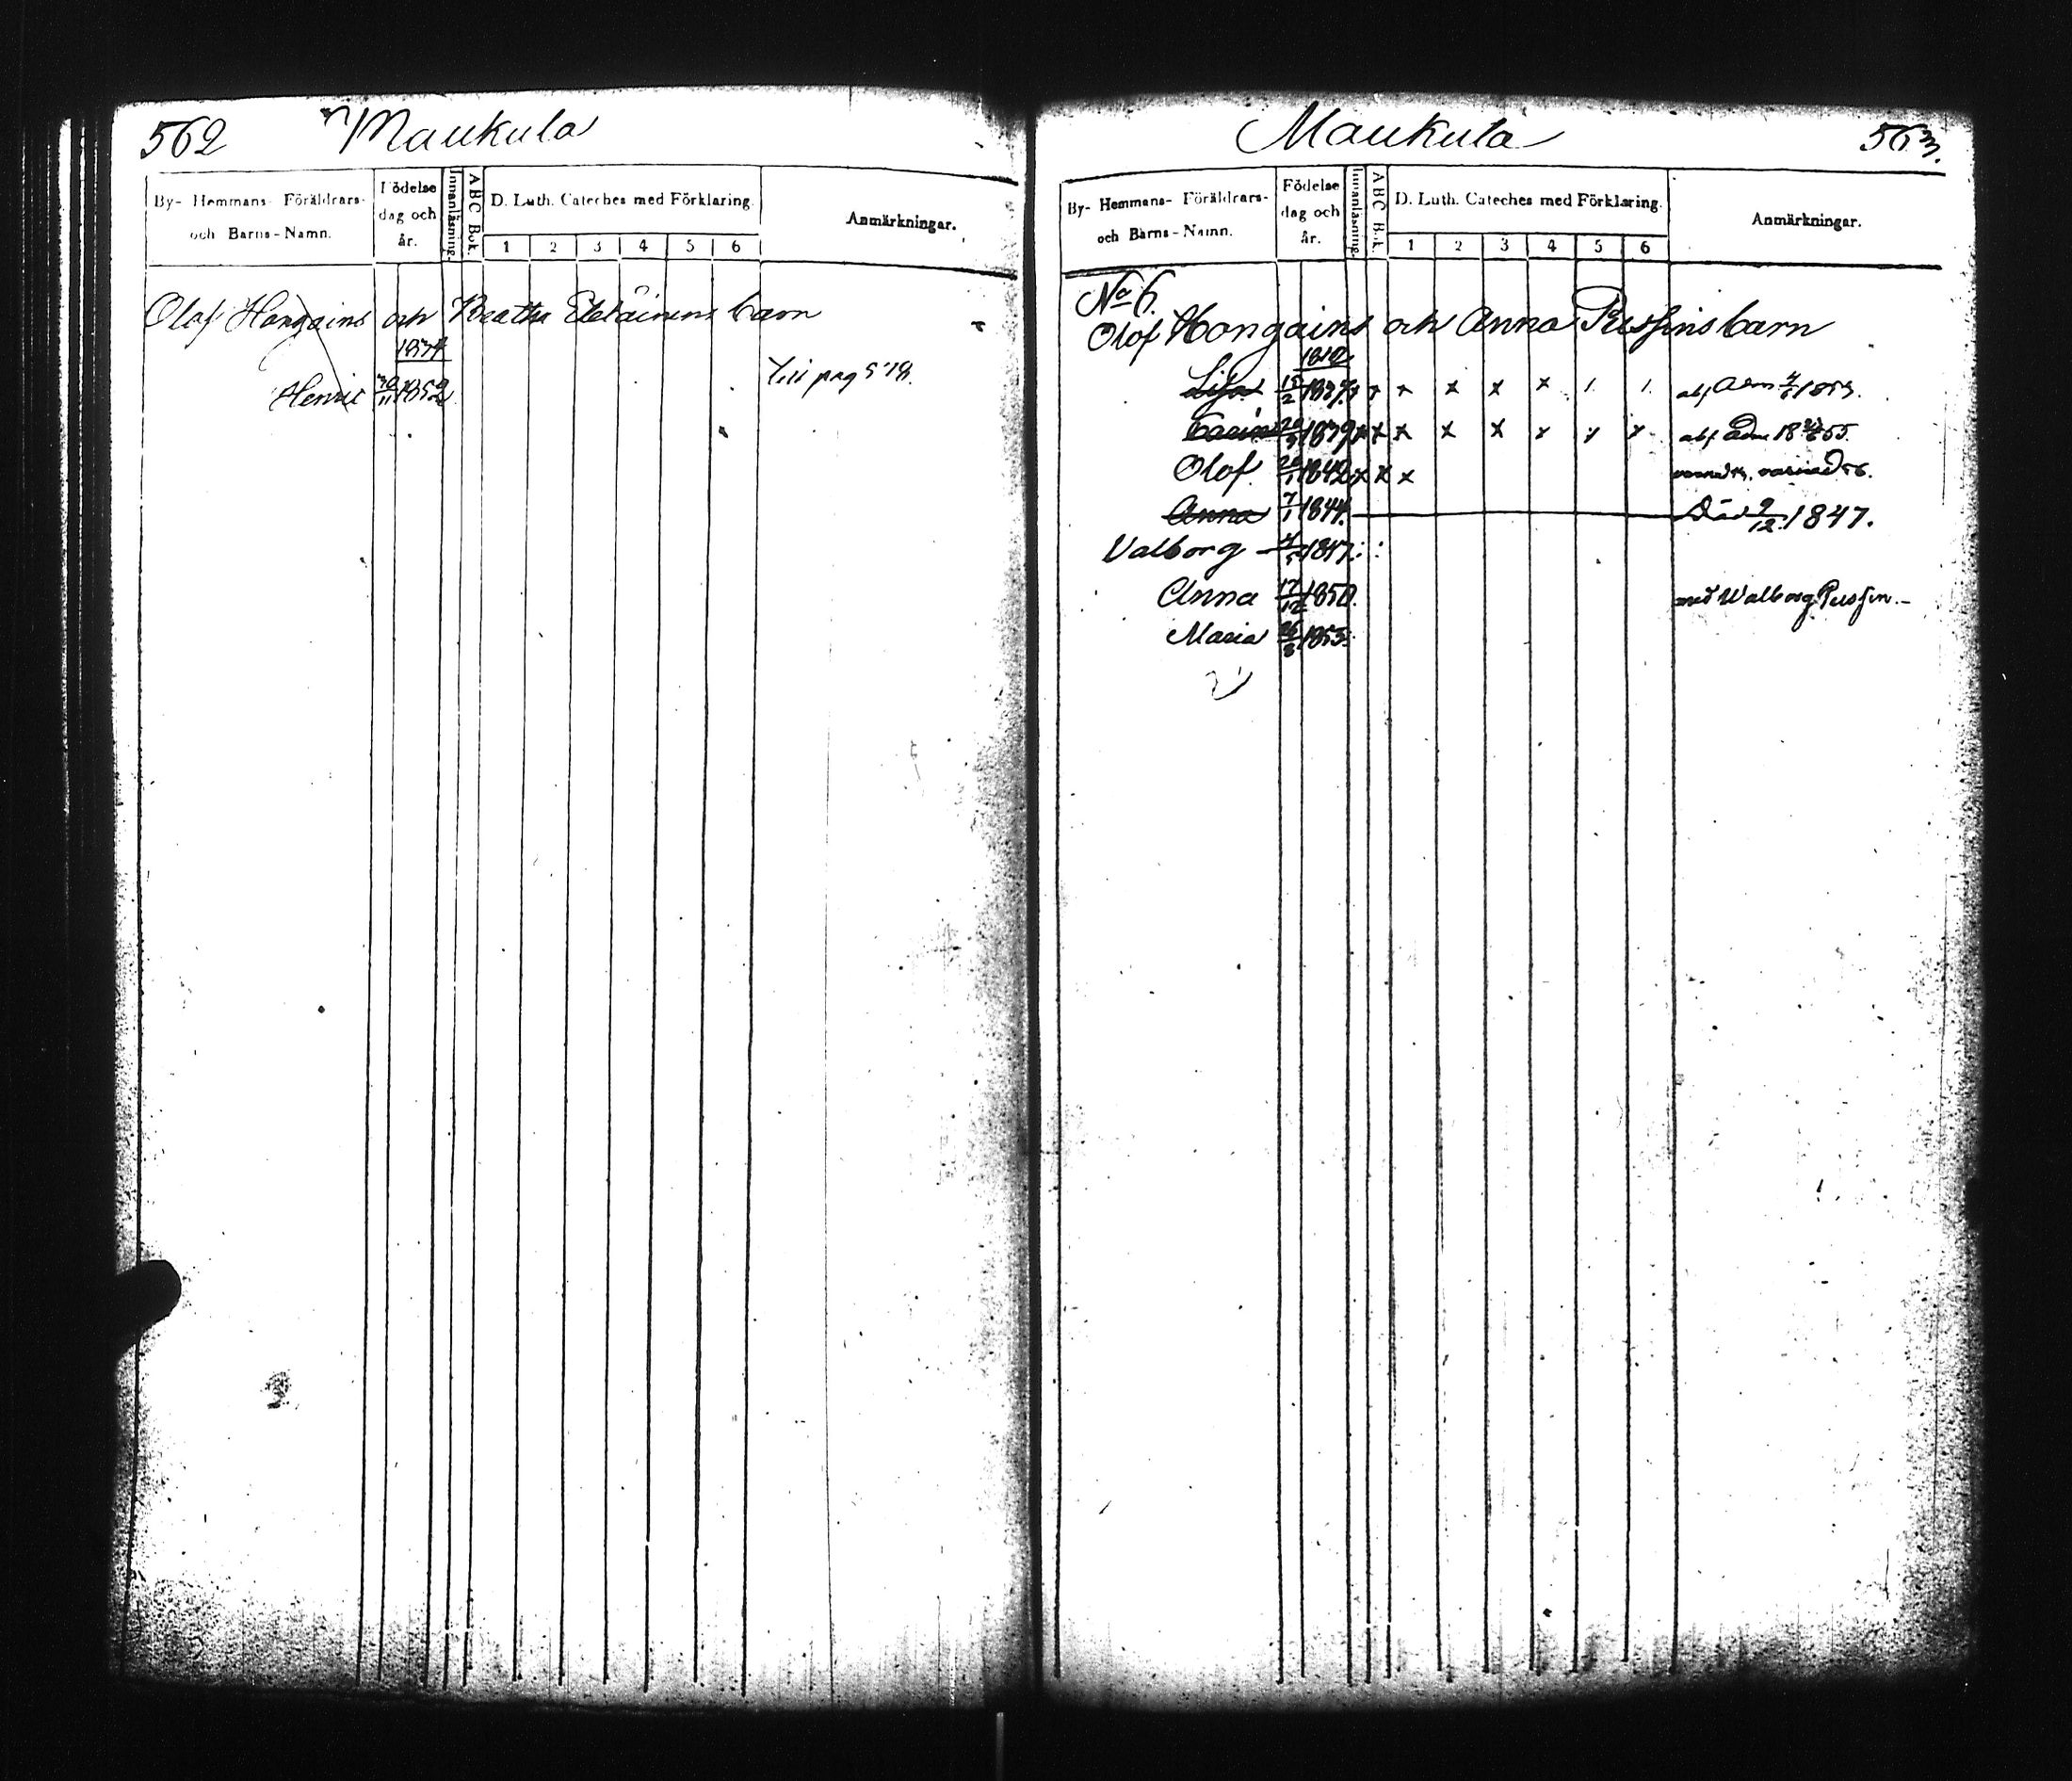 562 Maukula
By- Hemmans- Föräldrars- och Barns-Namn. Födelse dag och år. Innanläsning. ABC Bok. D. Luth. Cateches med Förklaring. 1 2 3 4 5 6 Anmärkningar.
Olof Hongains och Beatha barn
Henric 30/11 1852 Till pag 578.
Maukula 563.
By- Hemmans- Föräldrars- och Barns-Namn. Födelse dag och år. Innanläsning. ABC Bok. D. Luth. Cateches med Förklaring. 1 2 3 4 5 6 Anmärkningar.
No 6.
Olof Hongains och Anna barn
1812
Lisa 15/2 1837 x x x x x x
Carin 1839 x x x x x x x x
Olof 1842 x x x
Anna 7/1 1844. Död 9/12 1847.
Valborg 1847.
Anna 17/12 1850. med Walborg
Maria 1853.